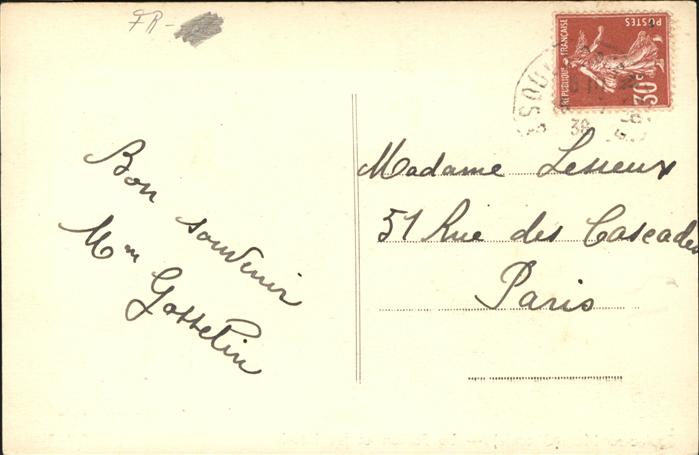 FR-
Bon souvenir
Mm Gosselin
POSTES
REPUBLIQUE FRANÇAISE
30c
38
Madame Lesieux
51 Rue des Cascades
Paris